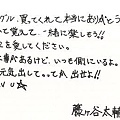 グル、買ってくれて本当にありがとう
て覚えて、一緒に楽しもう!!
えを愛してください。
事があるけど、いつも側にいるよ。
元気出してってか、出せよ!!
藤ヶ谷太輔